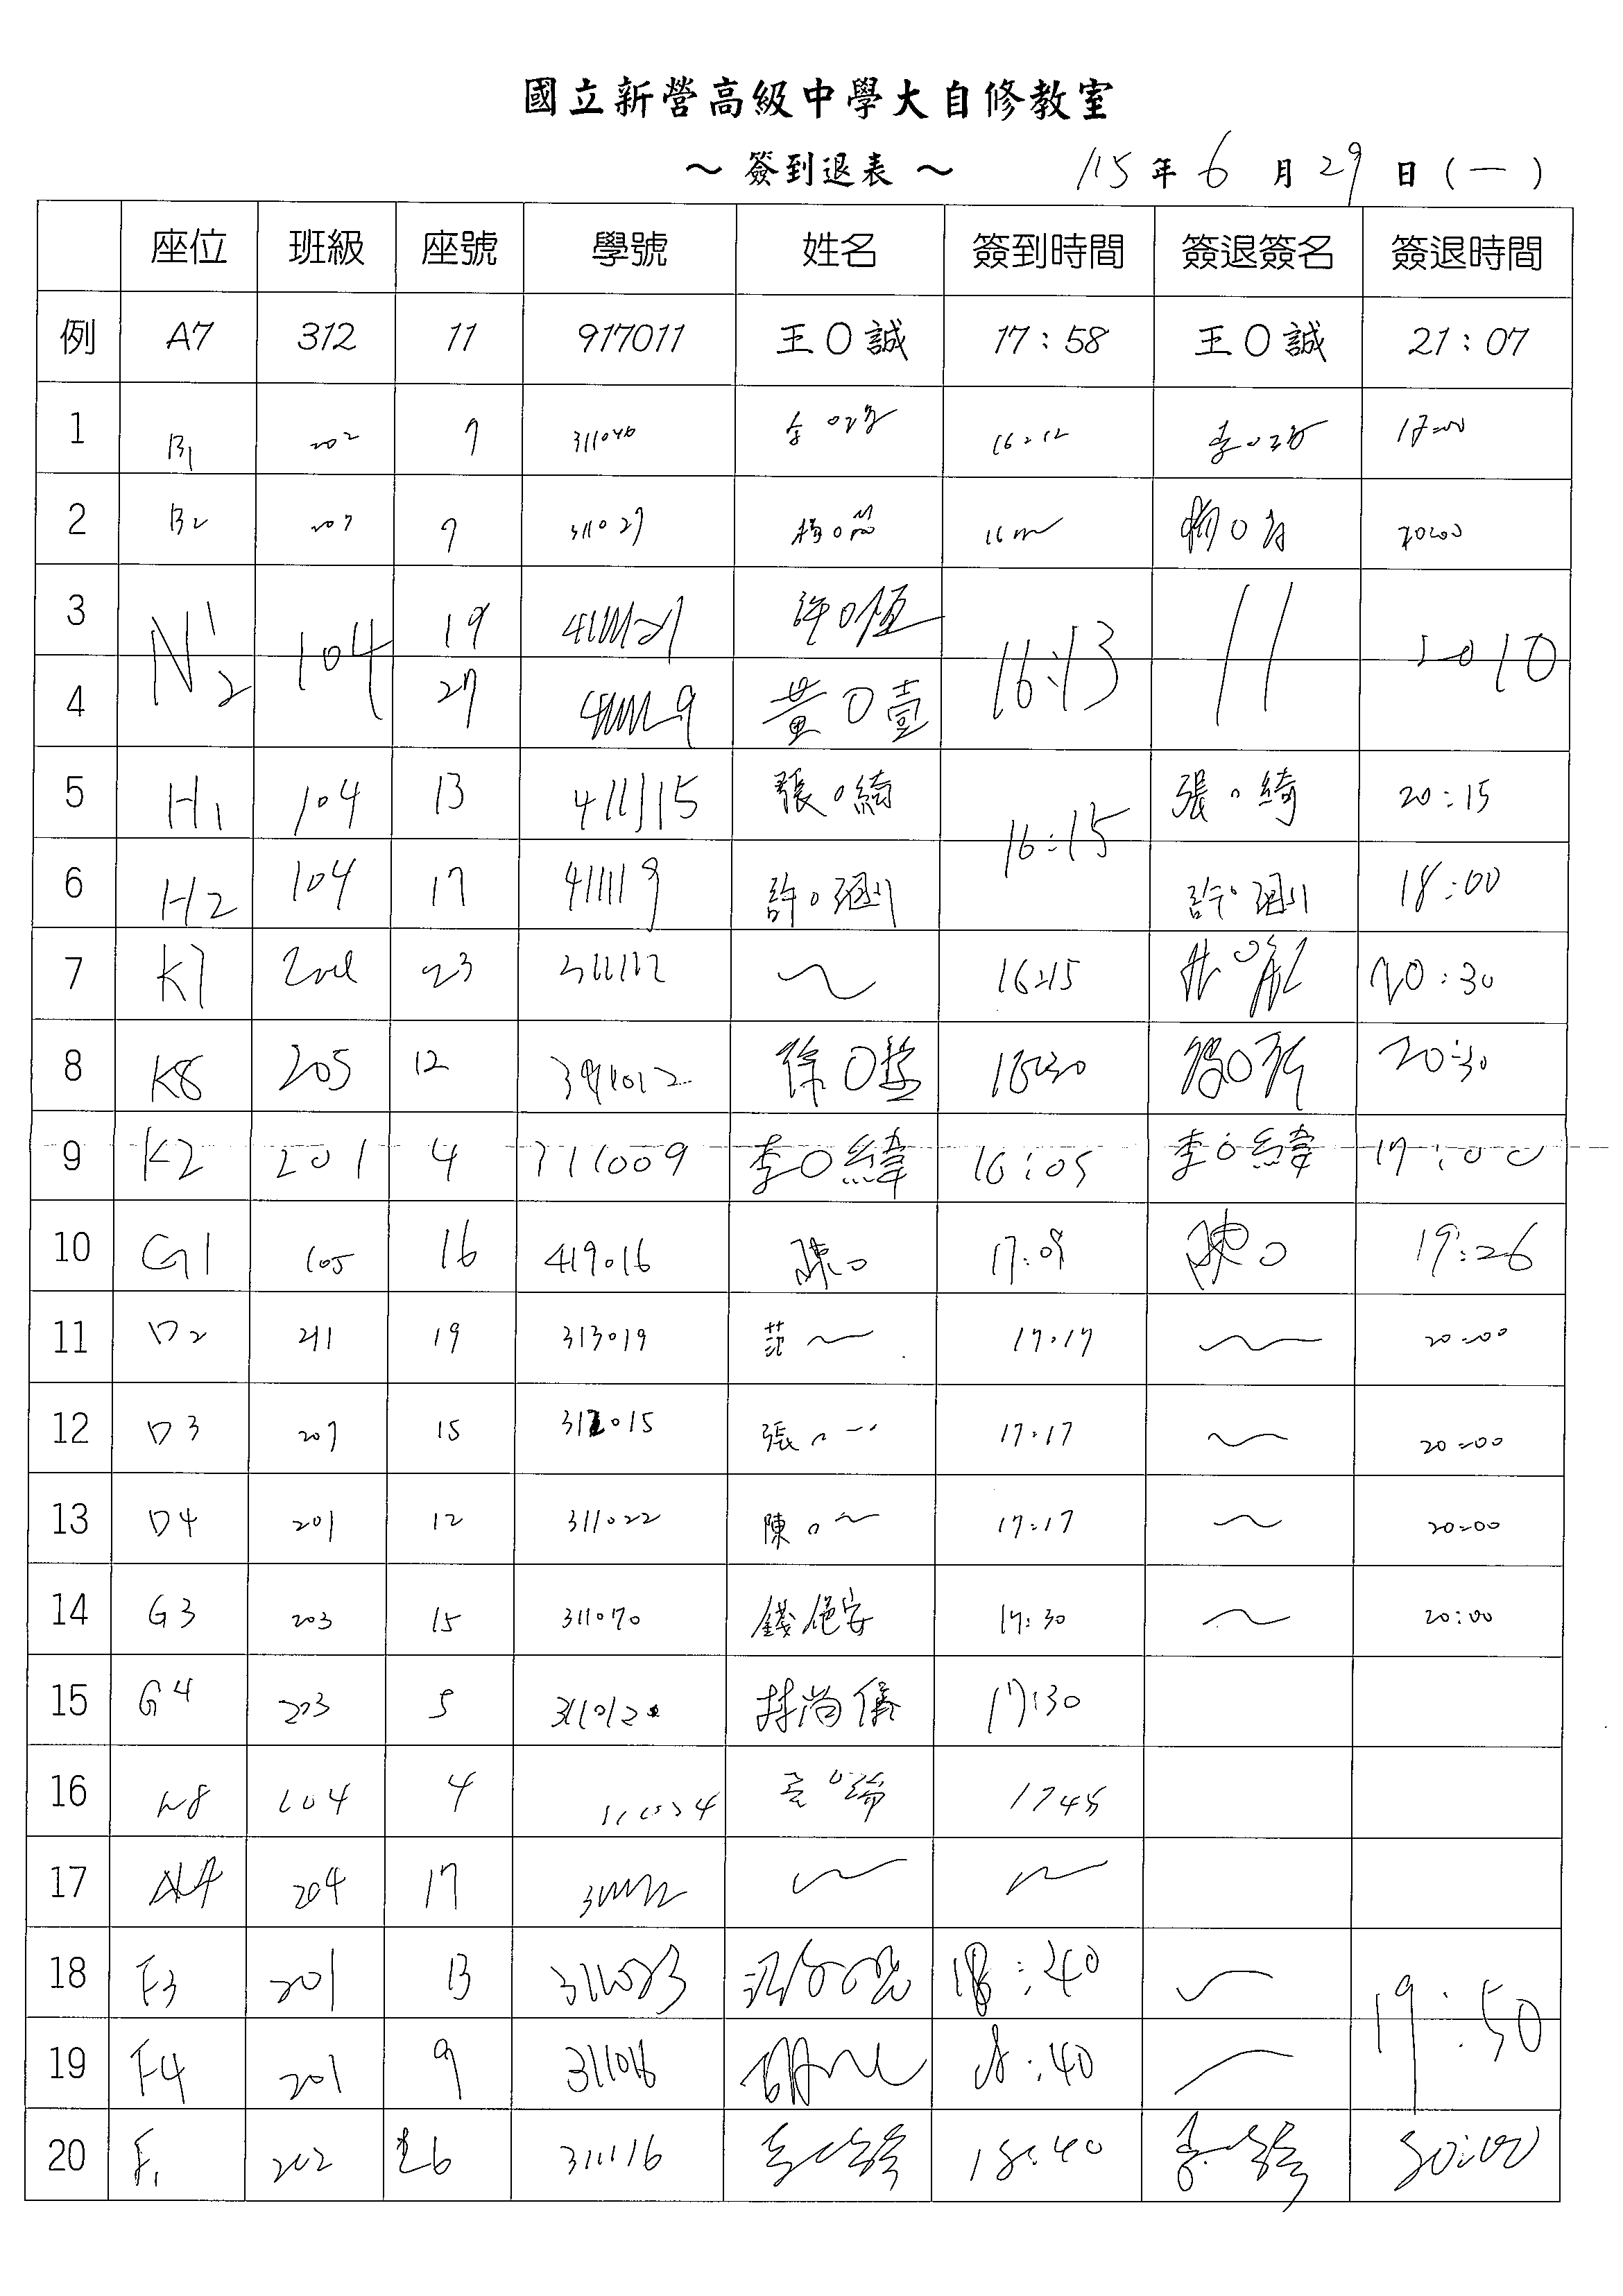 國立新營高級中學大自修教室
～ 簽到退表 ～ 115 年 6 月 29 日 (一)
座位 班級 座號 學號 姓名 簽到時間 簽退簽名 簽退時間
例 A7 312 11 917011 王O誠 17:58 王O誠 21:07
1 B1 202 7 311040 16:12 17:00
2 B2 207 9 311029 20:00
3 N1 104 19 許O恆 16:13 2010
4 2 27 黃O壹
5 H1 104 13 411115 張O綺 16:15 張O綺 20:15
6 H2 104 17 411119 許O 許O 18:00
7 K7 204 23 16:15 20:30
8 K8 205 12 徐O 16:30 20:30
9 K2 201 4 311009 李O緯 16:05 李O緯 17:00
10 G1 105 16 419016 陳O 17:09 陳O 19:26
11 D2 211 19 313019 范～ 17:17 ～ 20:00
12 D3 207 15 312015 張O 17:17 ～ 20:00
13 D4 201 12 311022 陳O～ 17:17 ～ 20:00
14 G3 203 15 311070 錢 安 17:30 ～ 20:00
15 G4 203 5 林尚儀 17:30
16 N8 104 4 1745
17 A4 204 17 ～ ～
18 F3 201 13 311023 18:40 ～ 19:50
19 F4 201 9 311018 18:40
20 F1 202 26 311116 18:40 20:00